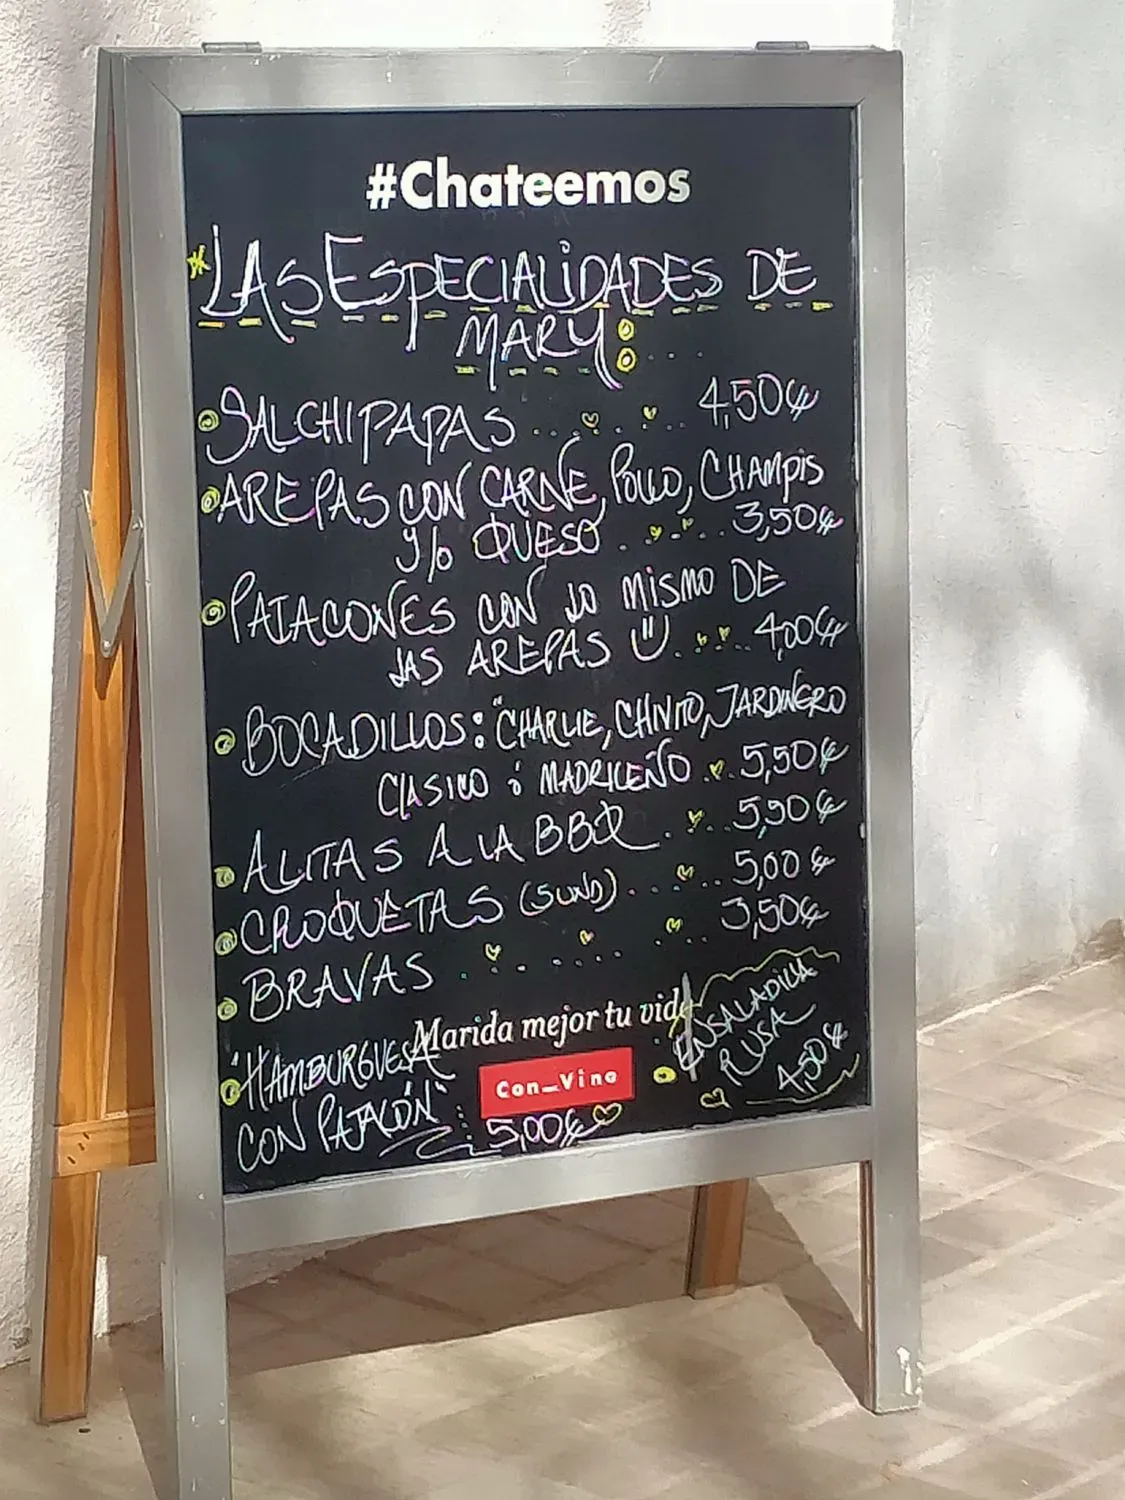 #Chateemos
*LAS ESPECIALIDADES DE
MARY:....
SALCHIPAPAS ... ... 4,50€
AREPAS CON CARNE, POLLO, CHAMPIS
Y/O QUESO . ... 3,50€
PATACONES CON LO MISMO DE
LAS AREPAS Ü. ... 4,00€
BOCADILLOS: "CHARLIE, CHINITO, JARDINERO
CLASICO ó MADRILEÑO . 5,50€
ALITAS A LA BBQ . ... 5,90€
CROQUETAS (5 UND) .... .. 5,00€
BRAVAS .. .. .... ... 3,50€
Marida mejor tu vida
Con_Vino
"HAMBURGUESA
CON PATACÓN" : 5,00€
ENSALADILLA
RUSA
4,50€